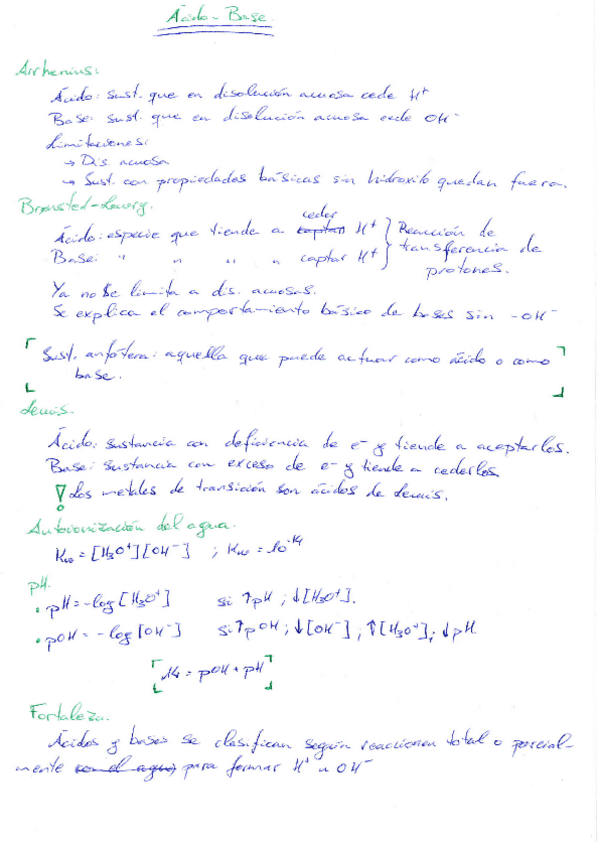 Ácido - Base
Arrhenius:
Ácido: sust. que en disolución acuosa cede H⁺
Base: sust. que en disolución acuosa cede OH⁻
Limitaciones:
→ Dis acuosa
→ Sust. con propiedades básicas sin hidroxilo quedan fuera.
Bronsted-Lowry.
Ácido: especie que tiende a captar ceder H⁺ } Reacción de
Base: " " " " captar H⁺ } transferencia de
protones.
Ya no se limita a dis. acuosas.
Se explica el comportamiento básico de bases sin -OH⁻
Sust. anfótera: aquella que puede actuar como ácido o como
base.
Lewis.
Ácido: sustancia con deficiencia de e⁻ y tiende a aceptarlos.
Base: sustancia con exceso de e⁻ y tiende a cederlos
! Los metales de transición son ácidos de Lewis.
Autoionización del agua.
Kw = [H₃O⁺][OH⁻] ; Kw = 10⁻¹⁴
pH.
• pH = -log [H₃O⁺] si ↑pH ; ↓[H₃O⁺].
• pOH = -log [OH⁻] si ↑pOH ; ↓[OH⁻] ; ↑[H₃O⁺]; ↓pH.
14 = pOH + pH
Fortaleza.
Ácidos y bases se clasifican según reaccionen total o parcial-
mente con el agua, para formar H⁺ u OH⁻